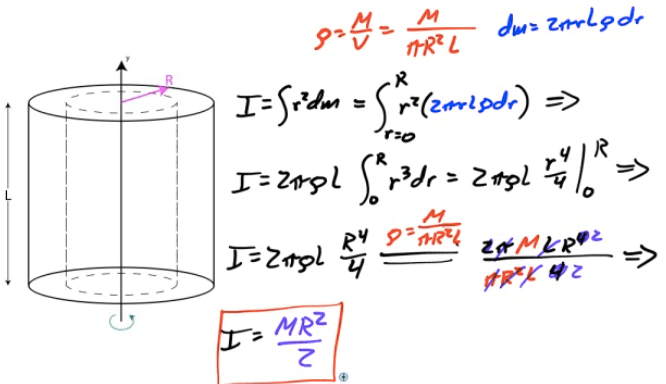 ρ = M/V = M/(πR²L)   dm = 2πrLρdr
y
R
I = ∫r²dm = ∫_{r=0}^{R} r²(2πrLρdr) ⇒
L
I = 2πρL ∫₀^R r³dr = 2πρL r⁴/4 |₀^R ⇒
I = 2πρL R⁴/4 =(ρ = M/(πR²L))= 2πMLR⁴ ² / πR²L 4 2 ⇒
I = MR²/2